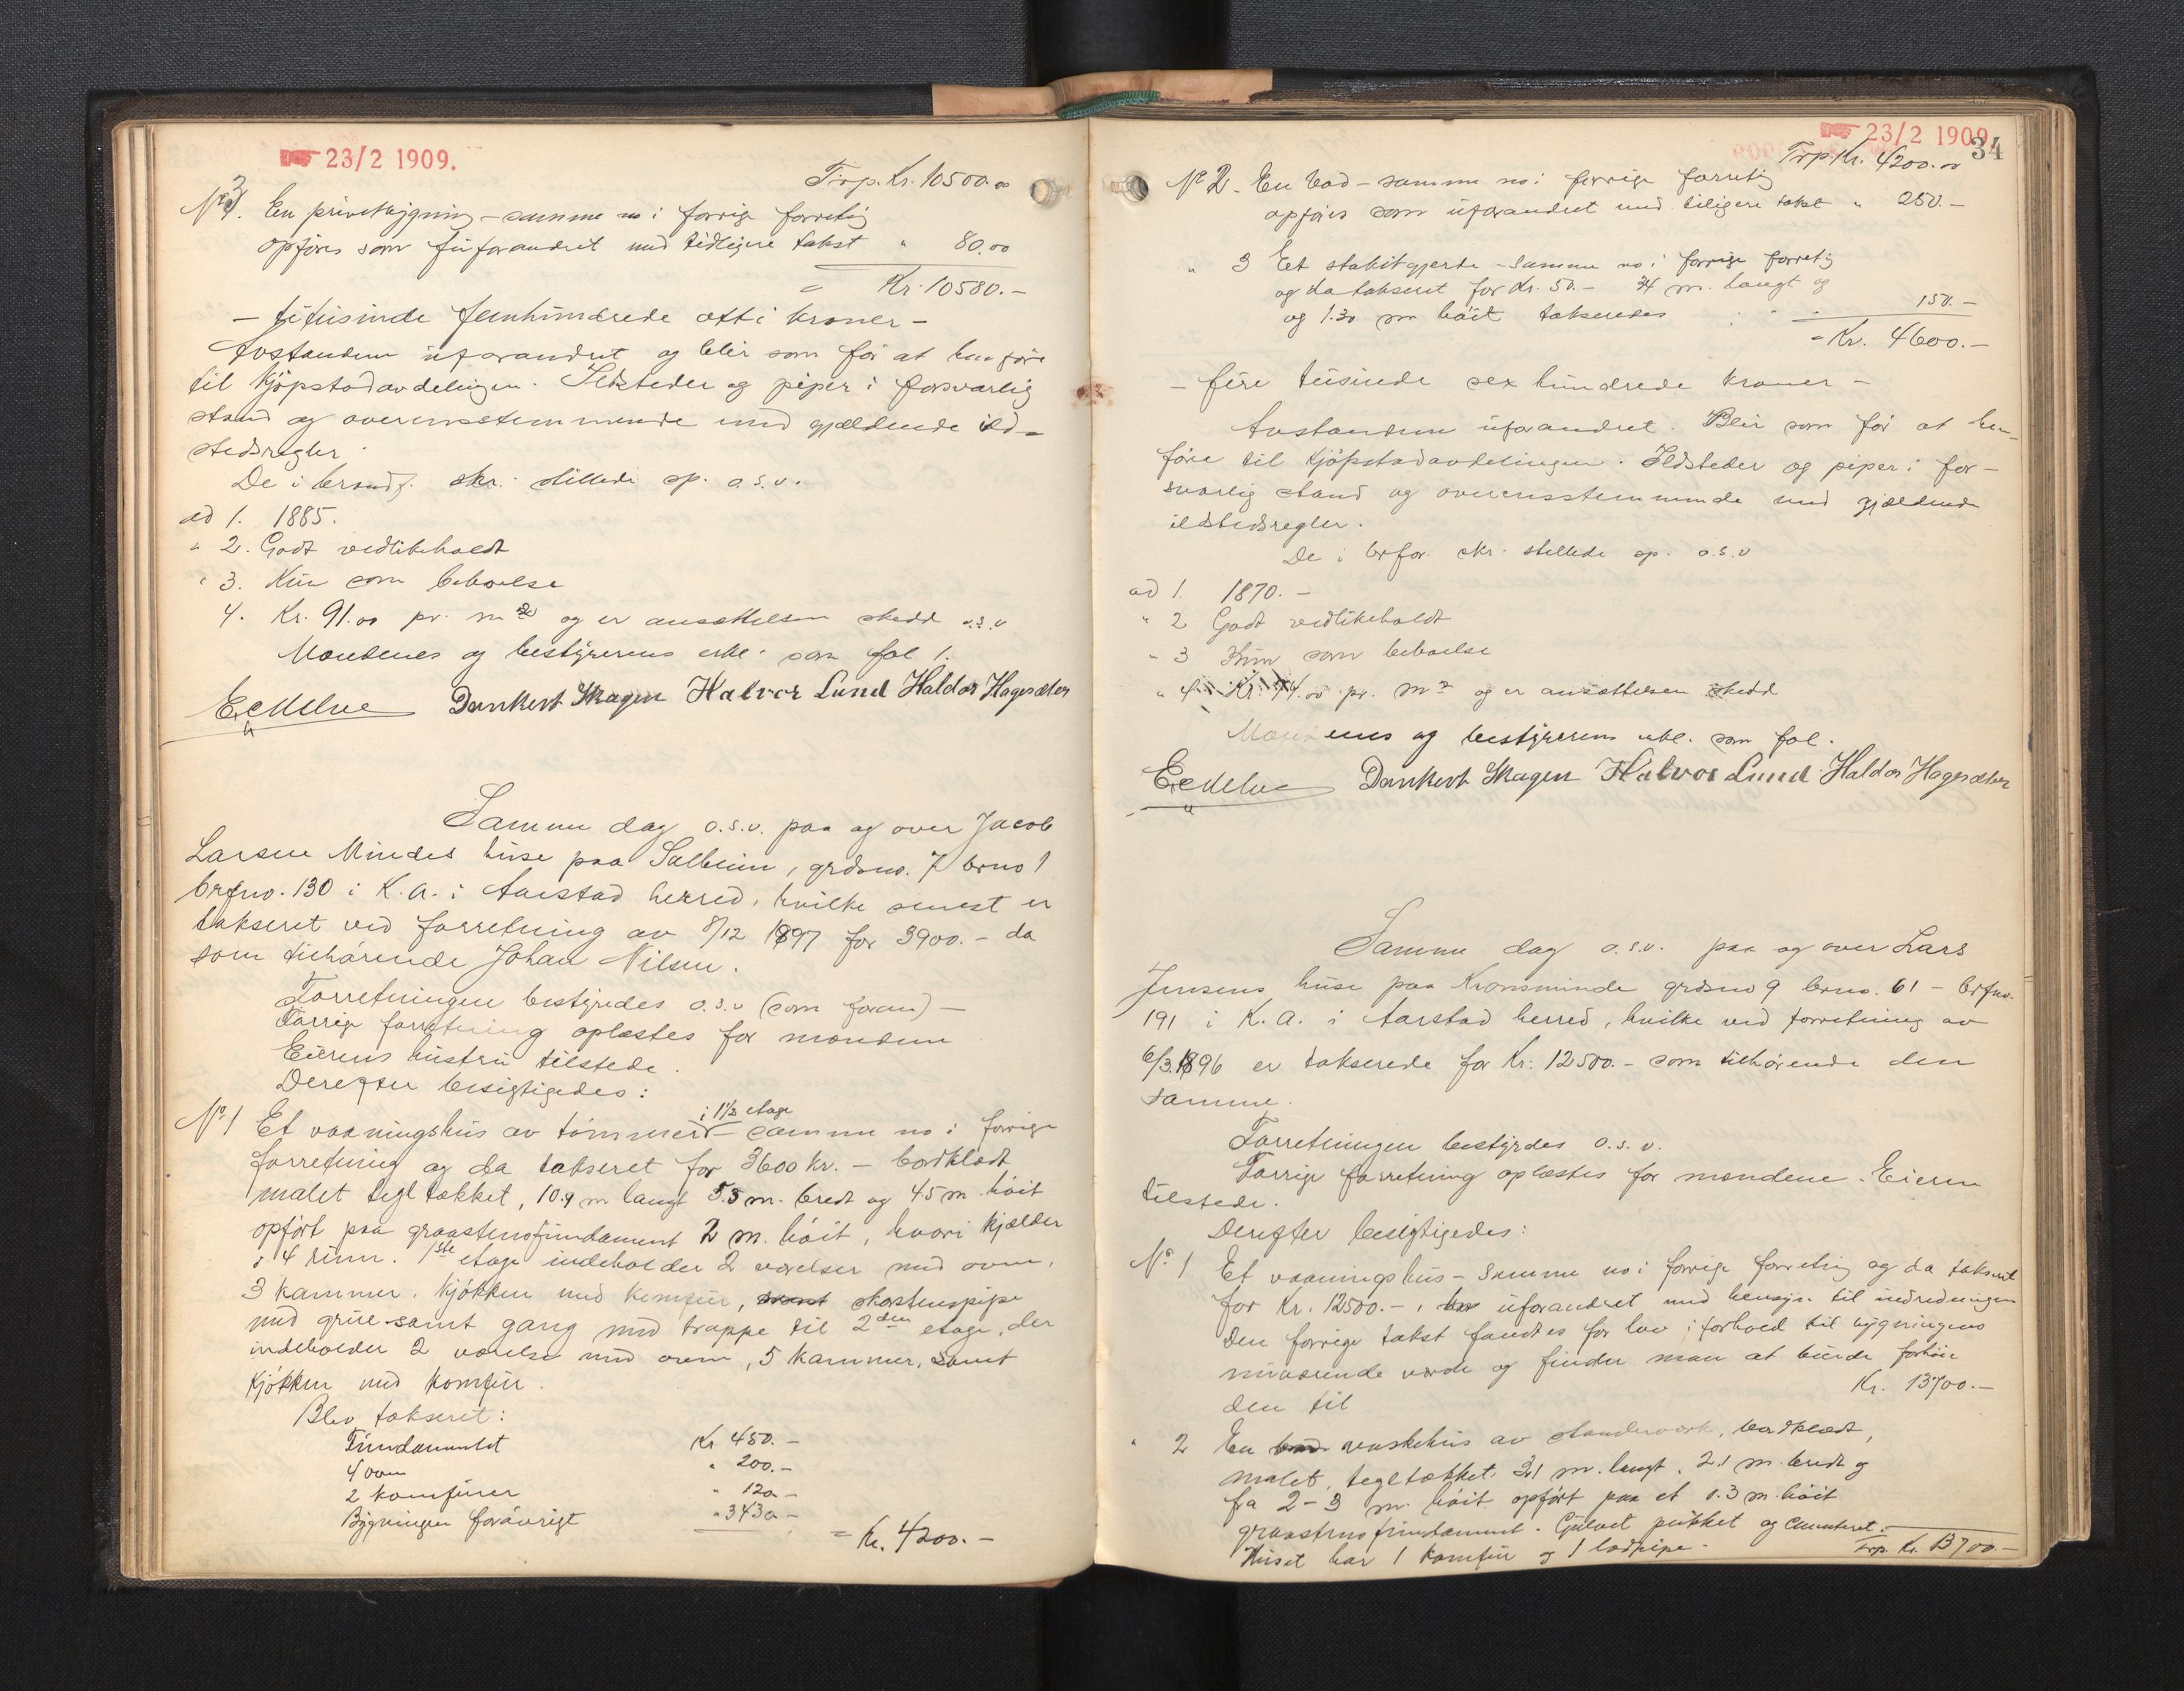 23/2 1909.
Trp. Kr. 10500.00
No 3. En privetbygning – samme no i forrige forretng
opføres som uforandret med tidligere takst " 80.00
= Kr. 10580.–
– titusinde femhundrede otti kroner –
Avstanden uforandret og blir som før at henføre
til kjøpstadavdelingen. Ildsteder og piper i forsvarlig
stand og overensstemmende med gjældende ild-
stedsregler.
De i brandf. skr. stillede sp. o.s.v.
ad 1. 1885.
" 2. Godt vedlikeholdt
" 3. Kun som beboelse
4. Kr. 91.00 pr. m2 og er ansættelsen skedd o.s.v
Mændenes og bestyrerens erkl. som fol 1.
Dankert Skagen Halvor Lund Haldor Hagesæter
Samme dag o.s.v. paa og over Jacob
Larsen Mindes huse paa Solheim, grdsno. 7 brno 1
brfno. 130 i K.A. i Aarstad herred, hvilke senest er
takseret ved forretning av 8/12 1897 for 3900.– da
som tilhørende Johan Nilsen.
Forretningen bestyredes o.s.v (som foran) –
Forrige forretning oplæstes for mændene
Eierens hustru tilstede.
Derefter besigtigedes:
No 1 Et vaaningshus av tømmer i 1½ etage – samme no i forrige
forretning og da takseret for 3600 kr. – bordklædt,
malet tegltækket, 10.9 m langt 5.5 m. bredt og 4.5 m. høit
opført paa graastensfundament 2 m. høit, hvori kjælder
i 4 rum. 1ste etage indeholder 2 værelser med ovn,
3 kammer, kjøkken med komfur, samt skorstenspipe
med grue samt gang med trappe til 2den etage, der
indeholder 2 værelse med ovn, 5 kammer, samt
kjøkken med komfur.
Blev takseret:
Fundamentet Kr 450.–
4 ovn " 200.–
2 komfurer " 120 –
Bygningen forøvrigt " 3430 –
= Kr. 4200.–
23/2 1909.
34
Trp. Kr. 4200.00
No 2. En bod – samme no i forrige forretng
opføres som uforandret med tidligere takst " 250.–
" 3 Et stakitgjerde – samme no i forrige forretng
og da takseret for Kr. 50.– 34 m. langt og
og 1.30 m høit takseredes " 150.–
= Kr. 4600.–
– fire tusinde sex hundrede kroner –
Avstanden uforandret. Blir som før at hen-
føre til kjøpstadavdelingen. Ildsteder og piper i for-
svarlig stand og overensstemmende med gjældende
ildstedsregler.
De i brfor. skr. stillede sp. o.s.v
ad 1. 1870. –
" 2 Godt vedlikeholdt
" 3 Kun som beboelse
" 4 Kr. 74.00 pr. m2 og er ansættelsen skedd
Mændenes og bestyrerens erkl. som fol.
Dankert Skagen Halvor Lund Haldor Hagesæter
Samme dag o.s.v. paa og over Lars
Jensens huse paa Kronsminde grdsno 9 brno. 61 – brfno.
191 i K.A. i Aarstad herred, hvilke ved forretning av
6/3.1896 er takserede for Kr. 12500.– som tilhørende den
samme.
Forretningen bestyrdes o.s.v.
Forrige forretning oplæstes for mændene. Eieren
tilstede.
Derefter besigtigedes:
No 1 Et vaaningshus – samme no i forrige forretng og da takseret
for Kr. 12500.– , uforandret med hensyn til indredningen
den forrige takst fandtes for lav i forhold til bygningens
nuværende værdi og finder man at burde forhøie
den til Kr. 13700.–
" 2 En bod vaskehus av standerværk, bordklædt,
malet, tegltækket 3.1 m. langt, 2.1 m. bredt og
fra 2–3 m. høit opført paa et 0.3 m. høit
graastensfundament. Gulvet pukket og cementeret.
Huset har 1 komfur og 1 lodpipe.
Trp. Kr. 13700.–